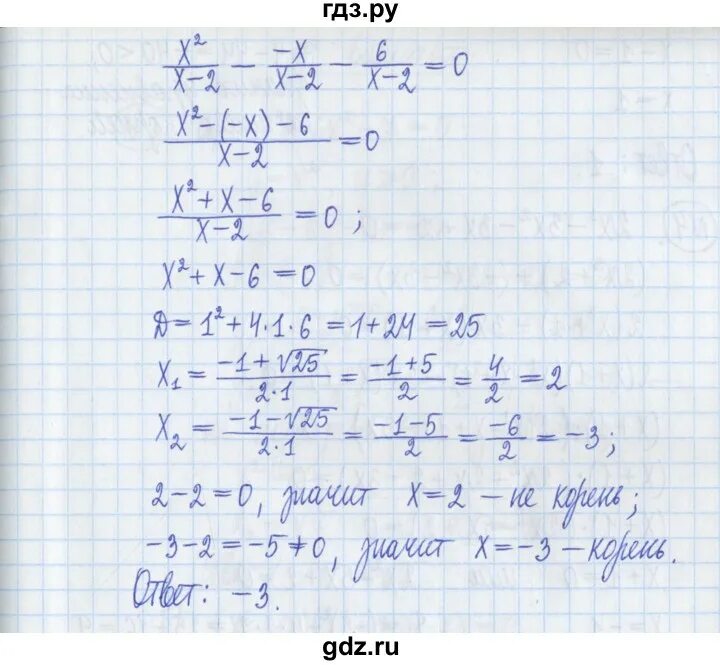 гдз.ру
x²/(x-2) - (-x)/(x-2) - 6/(x-2) = 0
(x²-(-x)-6)/(x-2) = 0
(x²+x-6)/(x-2) = 0;
x²+x-6=0
Д=1²+4·1·6=1+24=25
x₁=(-1+√25)/(2·1)=(-1+5)/2=4/2=2
x₂=(-1-√25)/(2·1)=(-1-5)/2=-6/2=-3;
2-2=0, значит x=2 - не корень;
-3-2=-5≠0, значит x=-3 - корень.
Ответ: -3.
gdz.ru